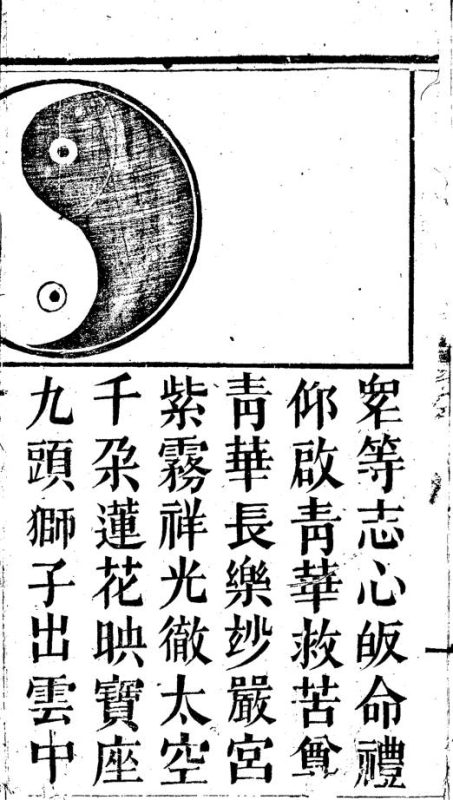 眾等志心皈命禮
仰啟青華救苦尊
青華長樂妙嚴宮
紫霧祥光徹太空
千朶蓮花映寶座
九頭獅子出雲中